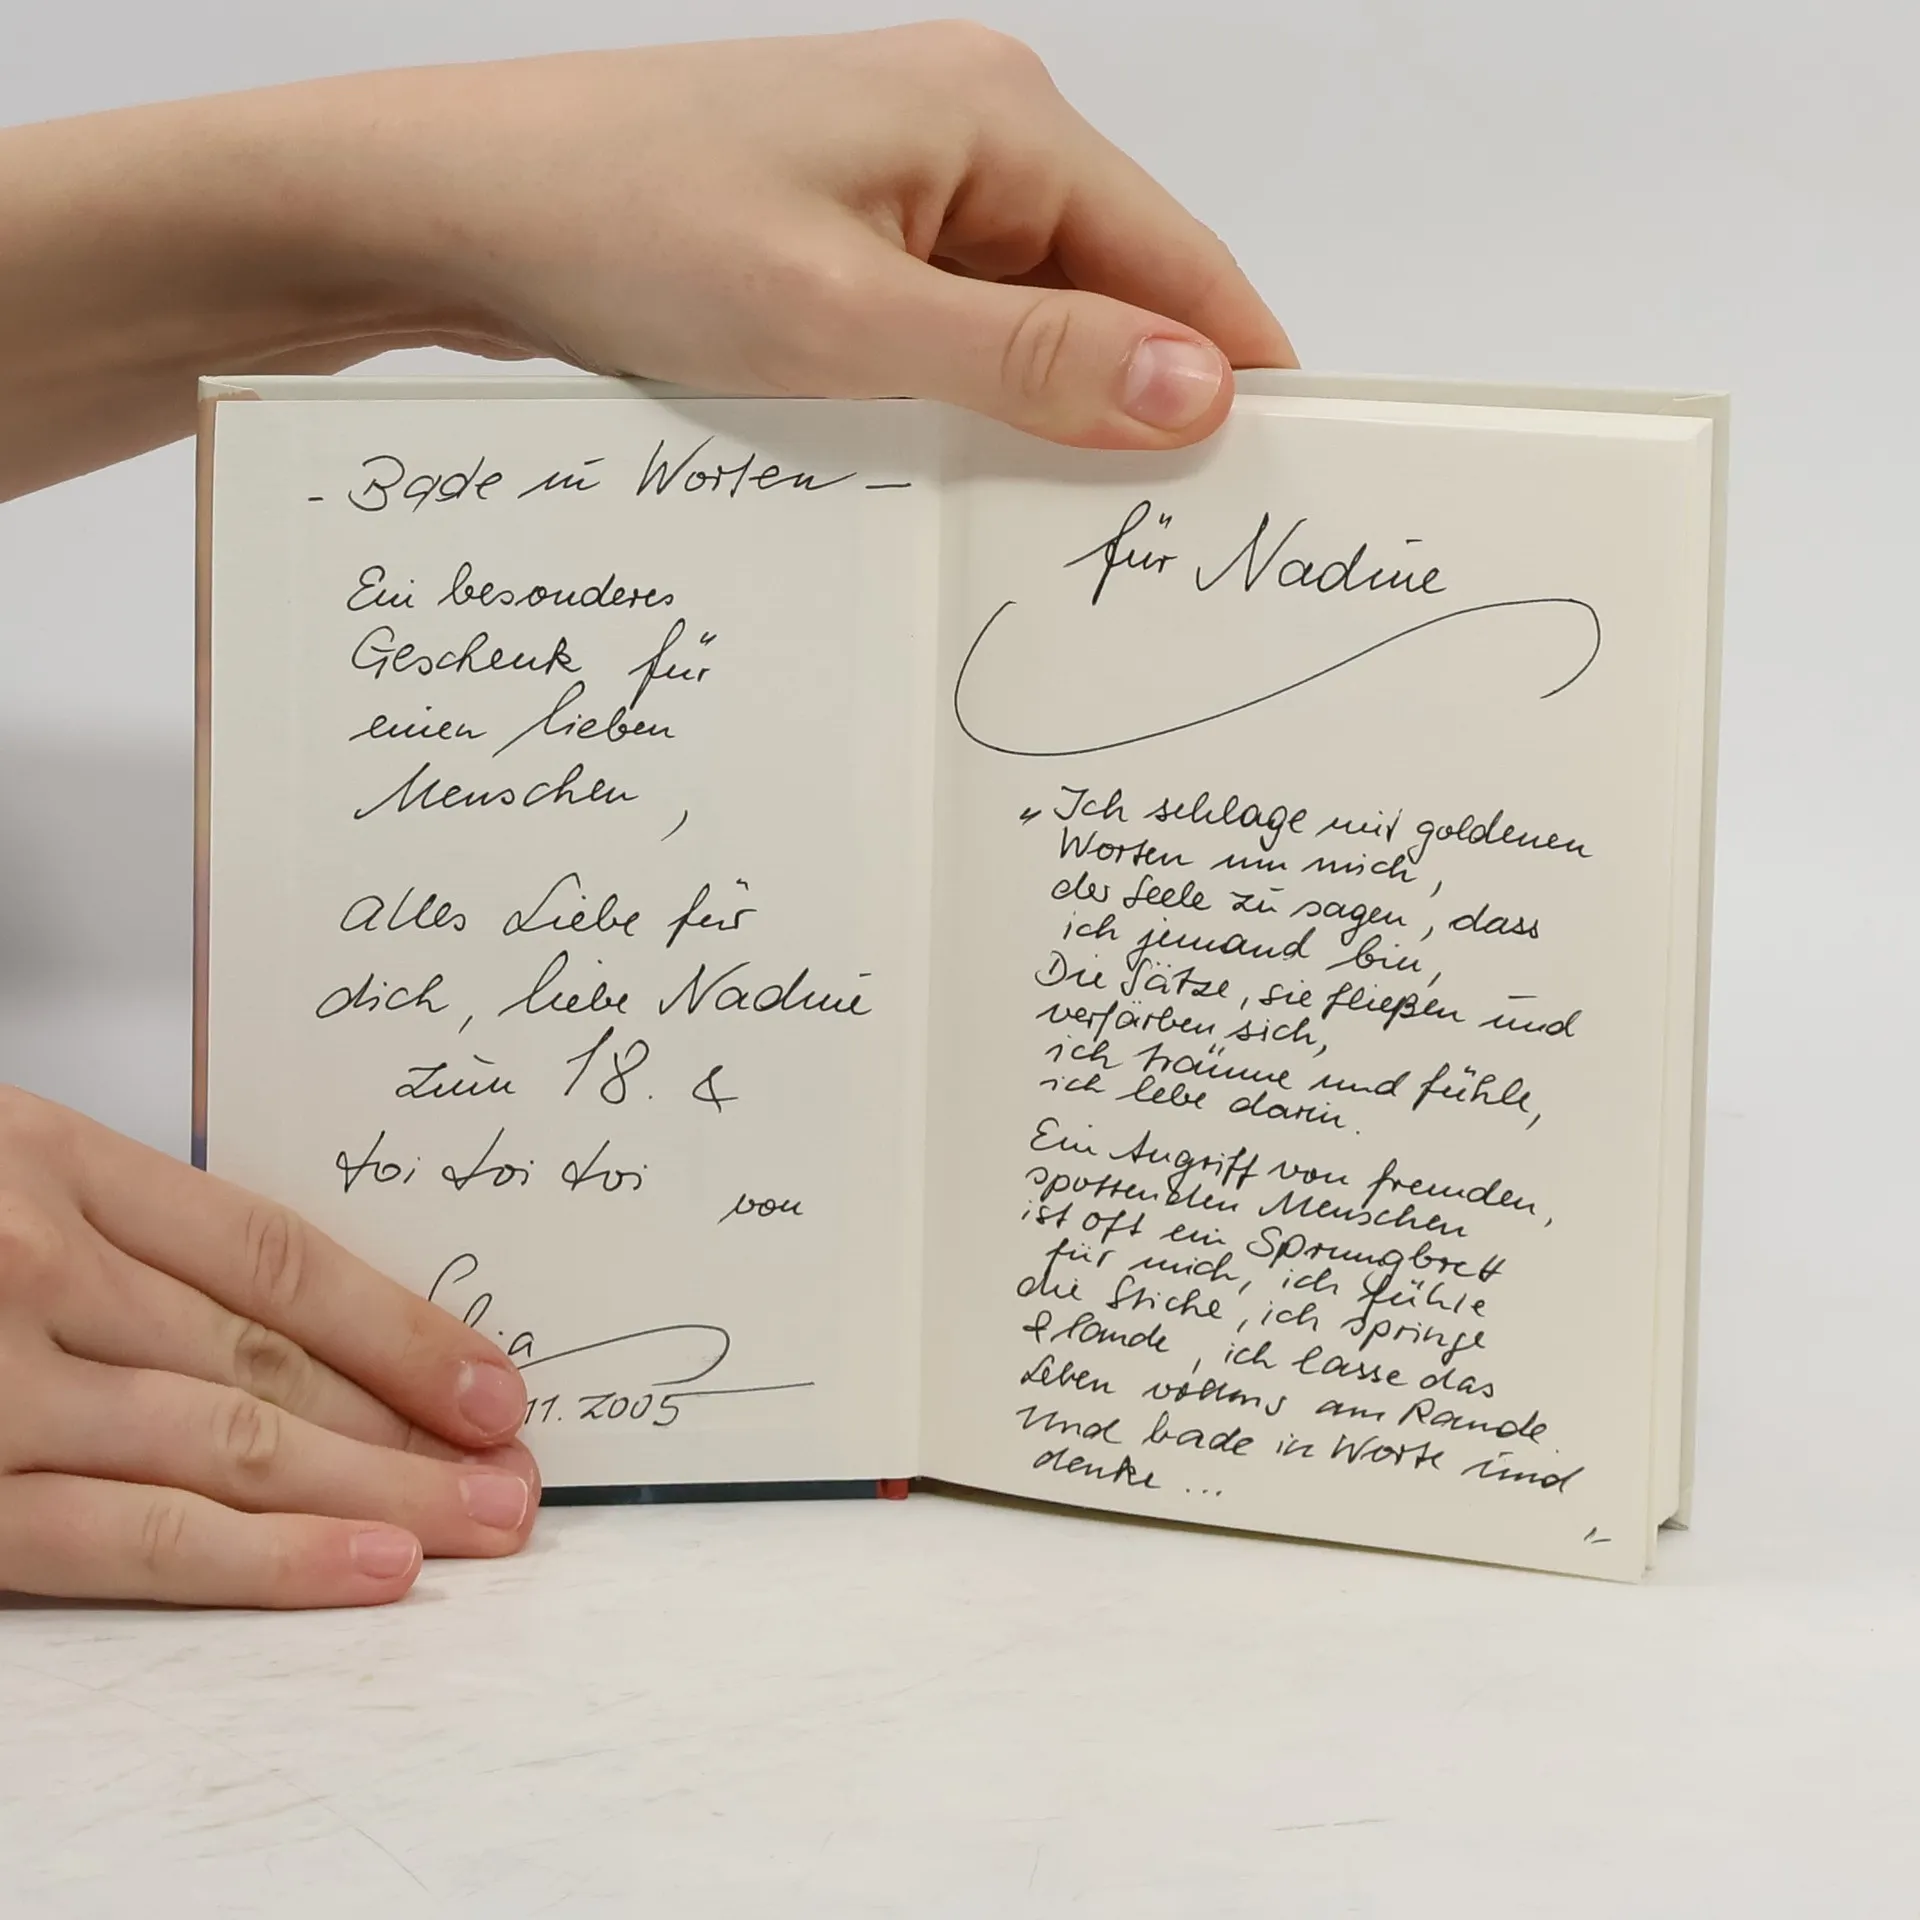 - Bade in Worten -
Ein besonderes
Geschenk für
einen lieben
Menschen,
Alles Liebe für
dich, liebe Nadine
zum 18. &
toi toi toi
von
11. 2005
für Nadine
„Ich schlage mit goldenen
Worten um mich,
der Seele zu sagen, dass
ich jemand bin,
Die Sätze, sie fließen und
verfärben sich,
ich träume und fühle,
ich lebe darin.
Ein Angriff von fremden,
spottenden Menschen
ist oft ein Sprungbrett
für mich, ich fühle
die Stiche, ich springe
& lande, ich lasse das
Leben am Rande.
Und bade in Worte und
denke ...